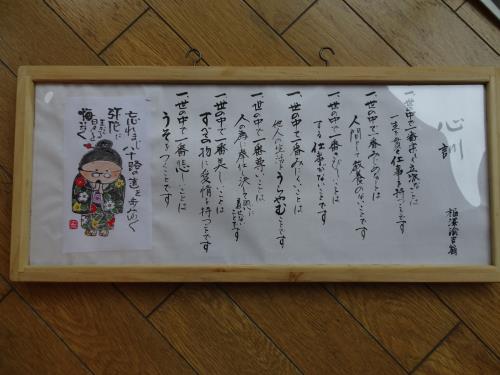 心訓
福澤諭吉翁
一、世の中で一番楽しく立派なことは
一生を貫く仕事を持つことです
一、世の中で一番みじめなことは
人間として教養のないことです
一、世の中で一番さびしいことは
する仕事がないことです
一、世の中で一番みにくいことは
他人の生活をうらやむことです
一、世の中で一番尊いことは
人の為に奉仕し決して恩に
着せないことです
一、世の中で一番美しいことは
すべての物に愛情を持つことです
一、世の中で一番悲しいことは
うそをつくことです
忘れまじ
八十路の
弥陀に